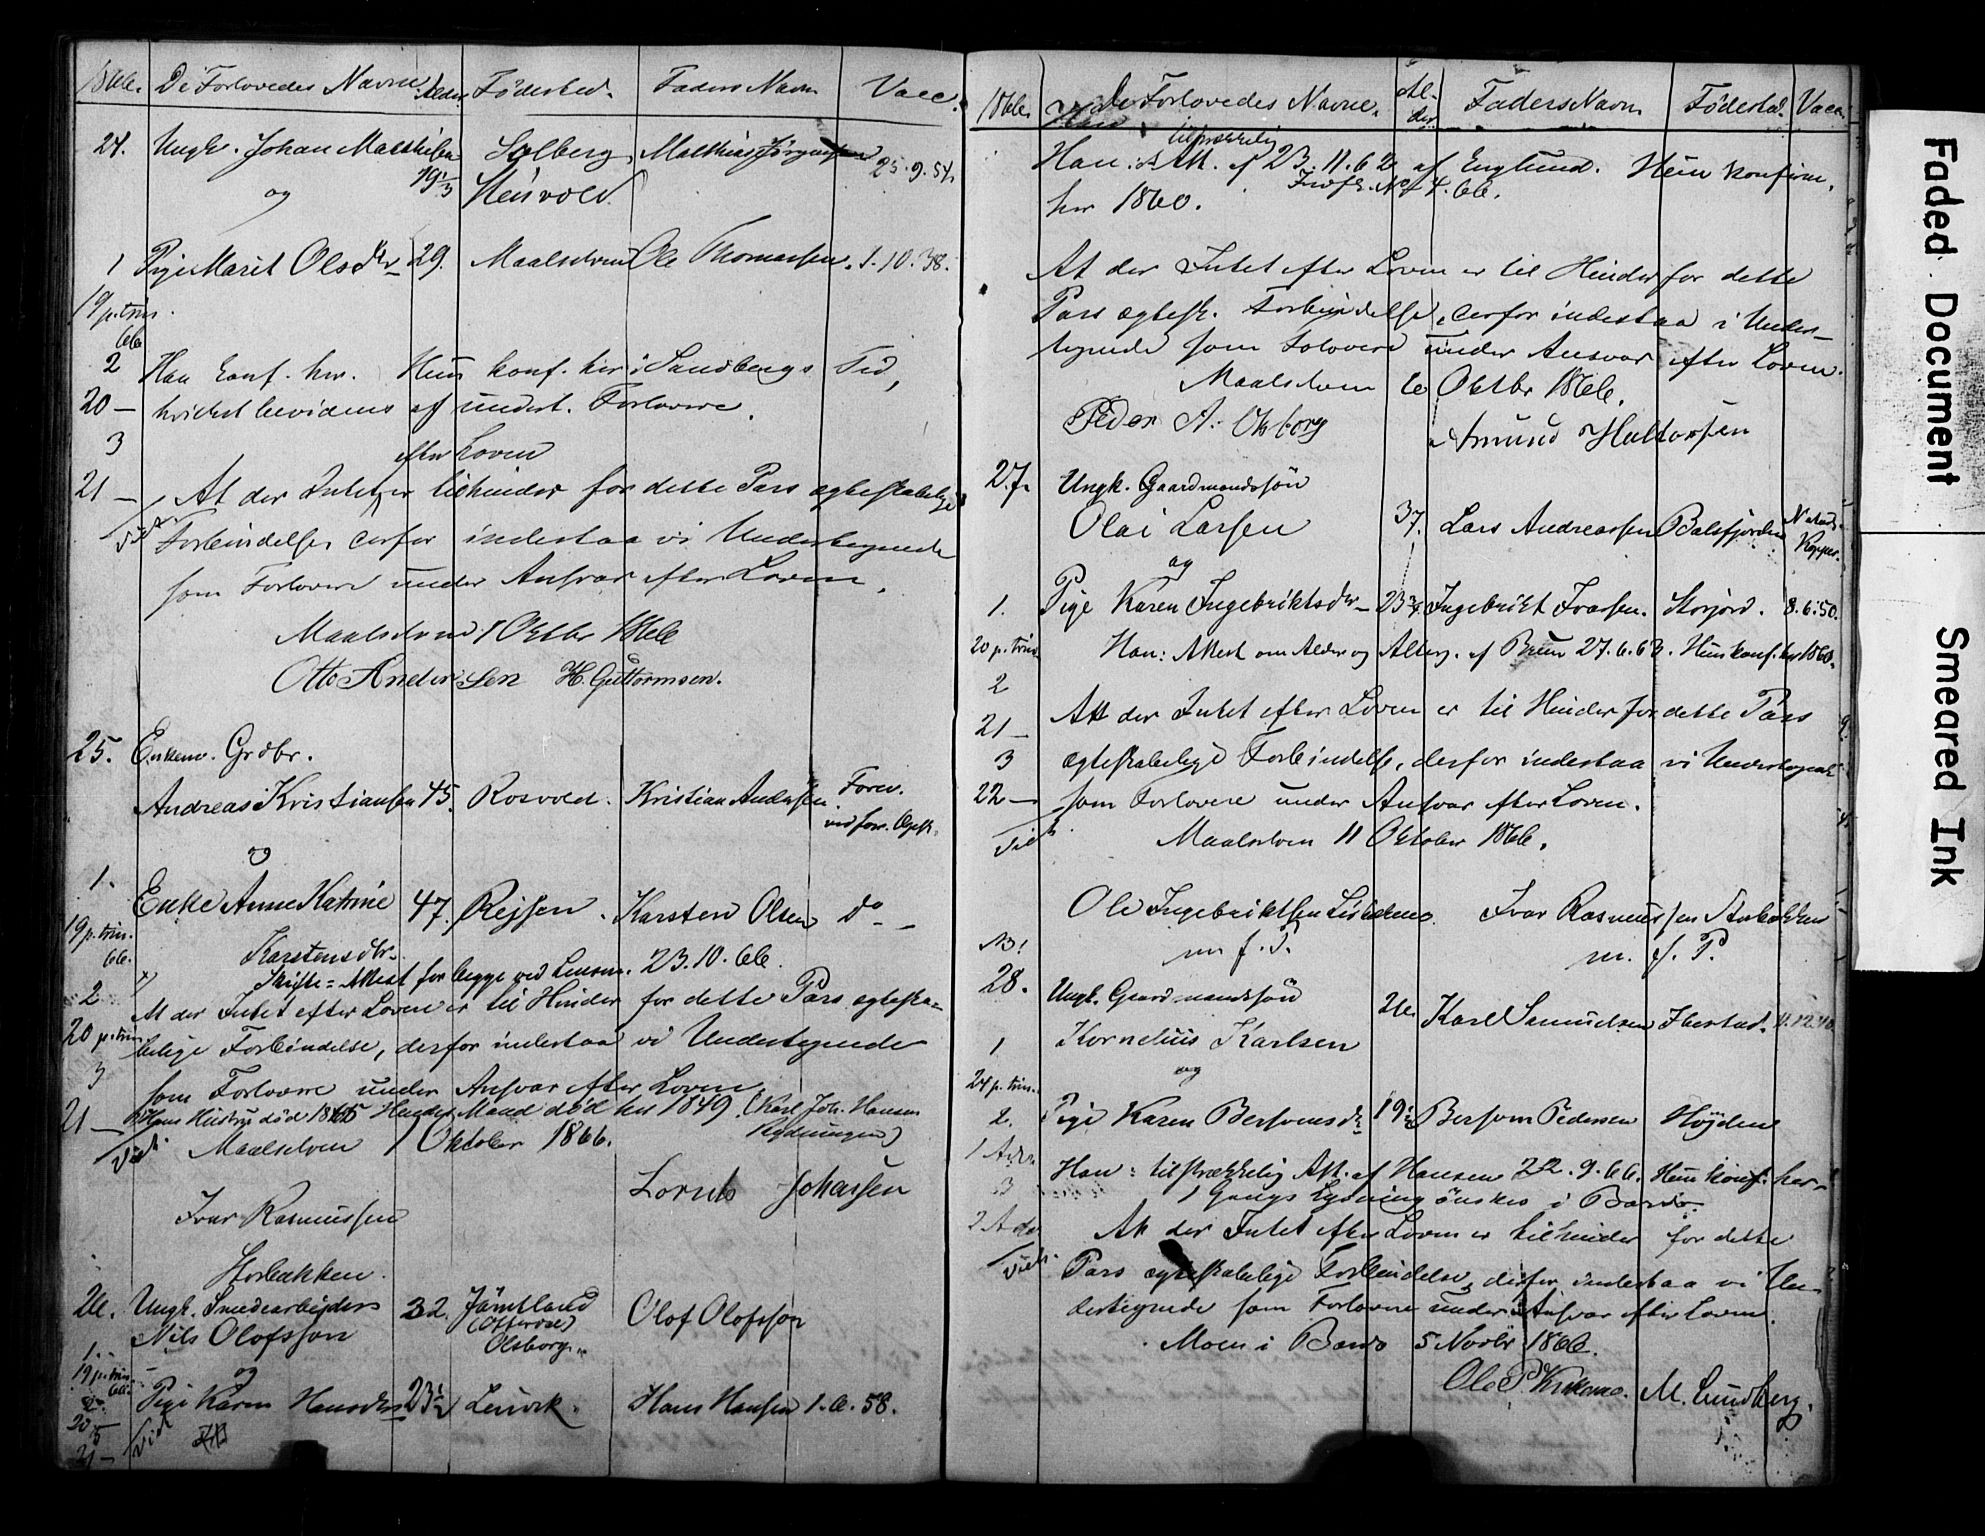 1866. De Forlovedes Navne Alder Fødested. Faders Navn Vacc.
24. Ungk. Johan Mathisen Solberg Mathias Jørgensen 25.9.54.
og
1 Pige Marit Olsdtr 29. Maalselven Ole Thomassen. 1.10.38.
19 p. trin.
66
2 Han konf. her. Hun konf. her i Sandbergs Tid,
20 — hvilket bevidnes af undert. Forlovere.
3
efter Loven
21 — At der Intet er til Hinder for dette Pars ægteskabelige
Forbindelse, derfor indestaa vi Undertegnede
som Forlovere under Ansvar efter Loven.
Maalselven 1 Oktbr 1866
Otto Andersen H. Guttormsen.
25. Enkem. Grdbr.
Andreas Kristiansen 45. Rosvold. Kristian Andersen Forev.
ved forr. Ægtsk.
og
1. Enke Anne Katrine 47. Rejsen. Karsten Olsen do —
19 p. trin. Karstensdtr.
66. Skifte-Attest for begge ved Lensm. 23.10.66.
2 At der Intet efter Loven er til Hinder for dette Pars ægteska-
20 p. trin belige Forbindelse, derfor indestaa vi Undertegnede
3 som Forlovere under Ansvar efter Loven.
21 — Hans Hustru død 1865 Hendes Mand død her 1849. (Karl Joh. Hansen
Vidi Maalselven 1 Oktober 1866.
Lornts Johansen
Ivar Rasmussen
Storbakken.
26. Ungk. Smedearbejder 32. Jämtland Olof Olofsson
Nils Olofsson Olsborg
1.
19 p. trin og
66
2. Pige Karen Hansdtr 23½ Lenvik. Hans Hansen 1.6.58.
20 —
3 Vidi
21 —
1866. De Forlovedes Navne. Al-
der Faders Navn Fødested. Vacc.
tilstrækkelig
Han: Att. af 23.11.62 af Englund. Hun konfirm.
her 1860.
At der Intet efter Loven er til Hinder for dette
Pars ægtesk. Forbindelse, derfor indestaa i Under-
tegnede som Forlovere under Ansvar efter Loven.
Maalselven 6 Oktbr 1866.
Peder A. Olsborg Amund Huttorsen
27. Ungk. Gaardmandssøn
Olai Larsen 37. Lars Andreassen Balsfjorden Naturl.
Kopper.
og
1. Pige Karen Ingebriktsdtr— 23¾ Ingebrikt Ivarsen. Storjord. 8.6.50.
20 p. trin. Han: Attest om Alder og Alterg. af Brun 27.6.63. Hun konf. her 1860.
2
21 — Att der Intet efter Loven er til Hinder for dette Pars
3 ægteskabelige Forbindelse, derfor indestaa vi Undertegnede
22 — som Forlovere under Ansvar efter Loven.
Vidi Maalselven 11 Oktober 1866.
Ole Ingebriktsen Ivar Rasmussen Storbakken
NB! m. f. P. m. f. P.
28. Ungk. Gaardmandssøn
Kornelius Karlsen 26. Karl Samuelsen Ibestad.
1
og
24 p. trin.
2. Pige Karen Bersvensdtr 19½ Bersven Pedersen Højden
1 Adv.
Han: tilstrækkelig Att. af Hansen 22.9.66. Hun konf. her—
3 1 Gangs Lysning ønskes i Bardo.
2 Adv. At der Intet efter Loven er til Hinder for dette
Vidi Pars ægteskabelige Forbindelse, derfor indestaa vi Un-
dertegnede som Forlovere under Ansvar efter Loven.
Moen i Bardo 5 Novbr 1866.
Ole P. Kirkemo. M. Lundberg.
Faded Document
Smeared Ink